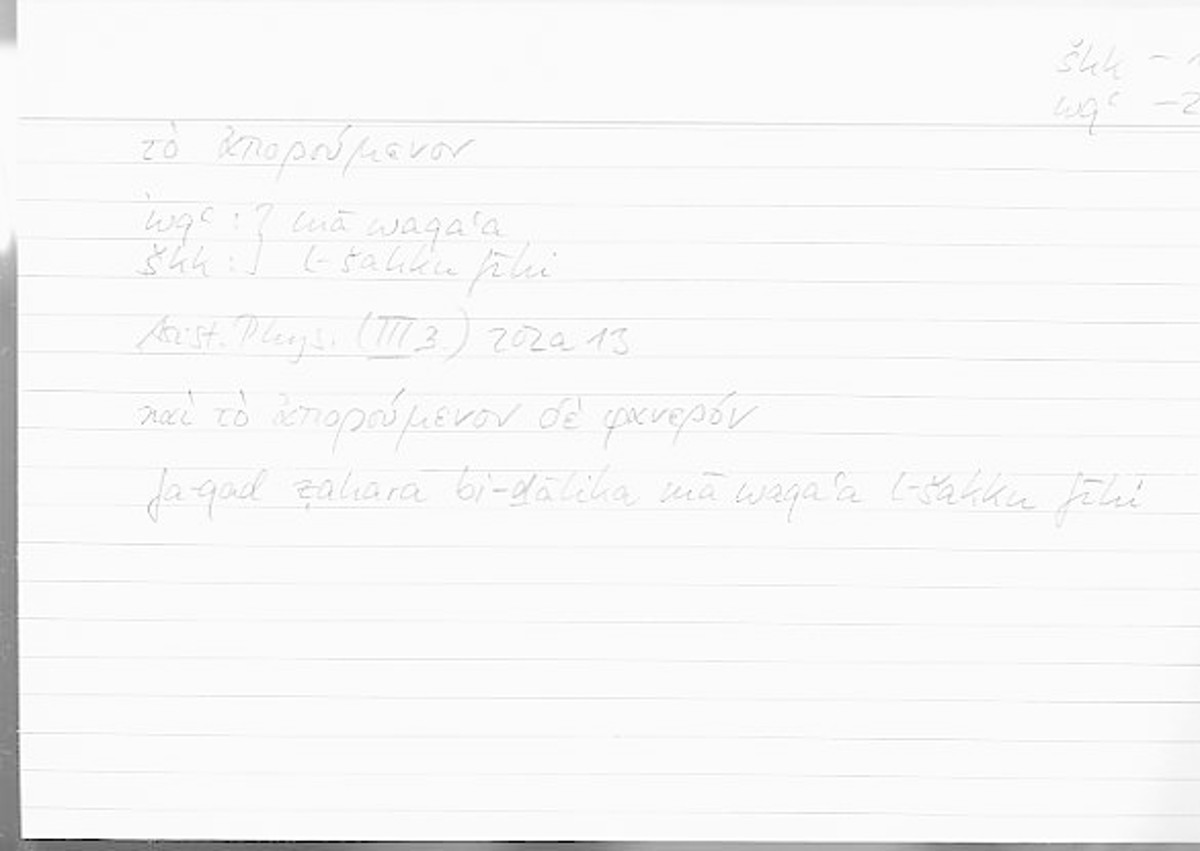 škk – 1
wqʿ – 2
τὸ ἀπορούμενον
wqʿ : } mā waqaʿa
škk : } l-šakku fīhi
Arist. Phys. (III 3.) 202a 13
καὶ τὸ ἀπορούμενον δὲ φανερόν
fa-qad ẓahara bi-ḏālika mā waqaʿa l-šakku fīhi